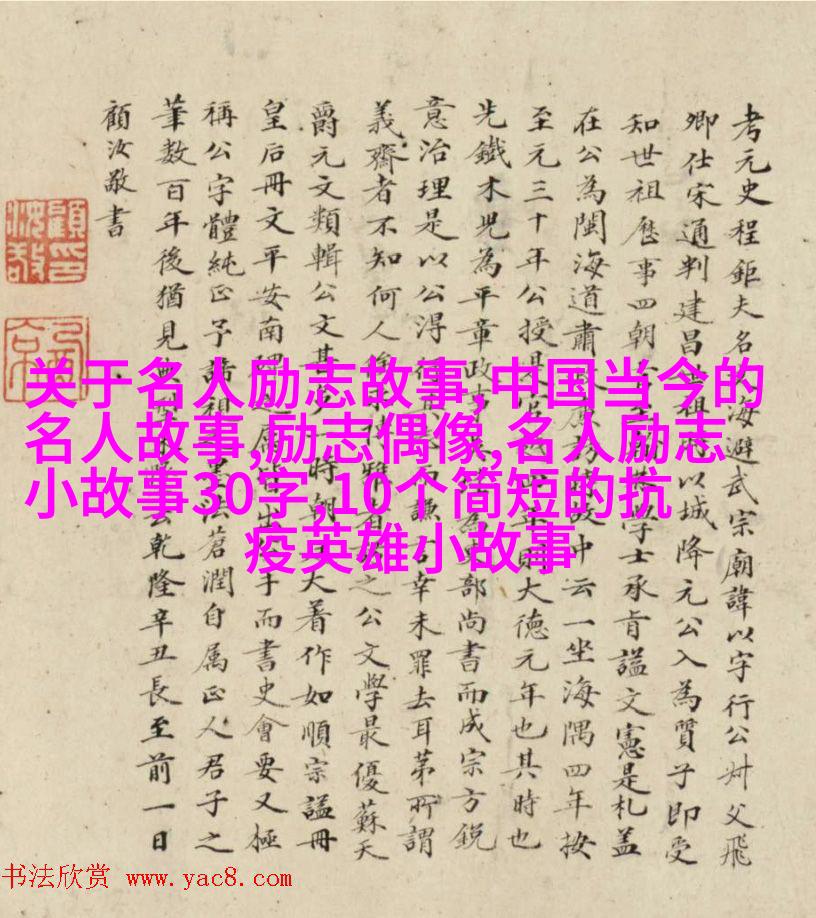 考元史程鉅夫名海避武宗廟諱以字行公父飛
卿仕宋通判建昌祖以城降元公入為質子即受
知世祖歷事四朝學士承旨諡文憲是札蓋
在公為閩海道肅中云一坐海隅四年按
至元三十年公授是官則大德元年也其時也
先鐵木兒為平章政事為部尚書而成宗方銳
意治理是以公得謙言幸未罪去耳苐所謂
義齋者不知何人之公文學最優蘇天
爵元文類輯公文甚一時朝大著作如順宗諡冊
皇后冊文平安南屬出手而書史會要又極
稱公字體純正予諸祖法蒼潤自属正人君子之
筆數百年後猶見乾隆辛丑長至前一日
顧汝敬書
关于名人励志故事,中国当今的
名人故事,励志偶像,名人励志
小故事30字,10个简短的抗
疫英雄小故事
书法欣赏 www.yac8.com